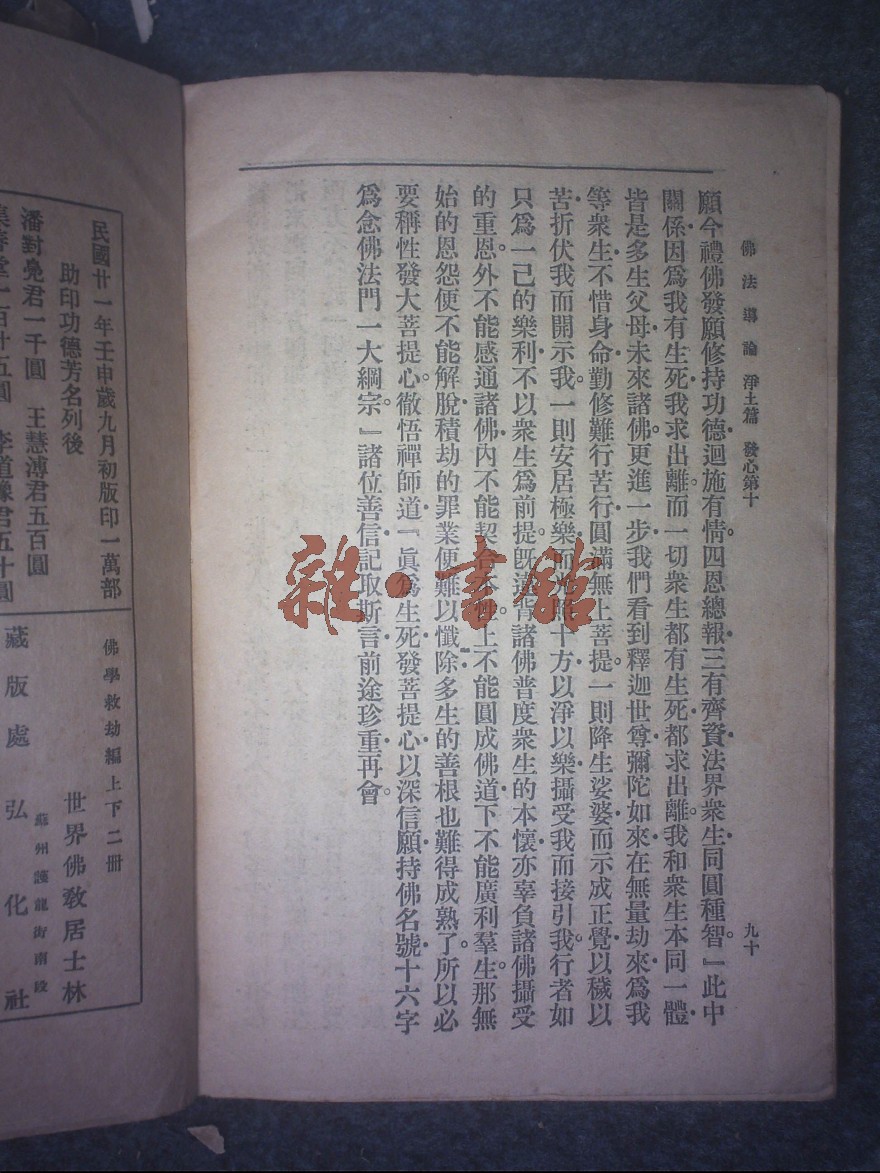 佛法導論 淨土篇 發心第十 九十
願今禮佛發願修持功德迴施有情。四恩總報三有齊資法界衆生同圓種智。』此中
關係因爲我有生死我求出離。而一切衆生都有生死都求出離。我和衆生本同一體
皆是多生父母未來諸佛。更進一步我們看到釋迦世尊彌陀如來在無量劫來爲我
等衆生不惜身命勤修難行苦行圓滿無上菩提。一則降生娑婆而示成正覺以穢以
苦折伏我而開示我。一則安居極樂而光照十方以淨以樂攝受我而接引我。行者如
只爲一己的樂利不以衆生爲前提。旣違背諸佛普度衆生的本懷亦辜負諸佛攝受
的重恩。外不能感通諸佛內不能契合本性上不能圓成佛道下不能廣利羣生。那無
始的恩怨便不能解脫積劫的罪業便難以懺除多生的善根也難得成熟了。所以必
要稱性發大菩提心。徹悟禪師道『眞爲生死發菩提心以深信願持佛名號十六字
爲念佛法門一大綱宗。』諸位善信記取斯言前途珍重再會。
雜·書館
民國廿一年壬申歲九月初版印一萬部
助印功德芳名列後
潘對凫君一千圓 王慧溥君五百圓
李道緣君五十圓
佛學救劫編上下二冊
世界佛敎居士林
蘇州護龍街南段
藏版處 弘化社